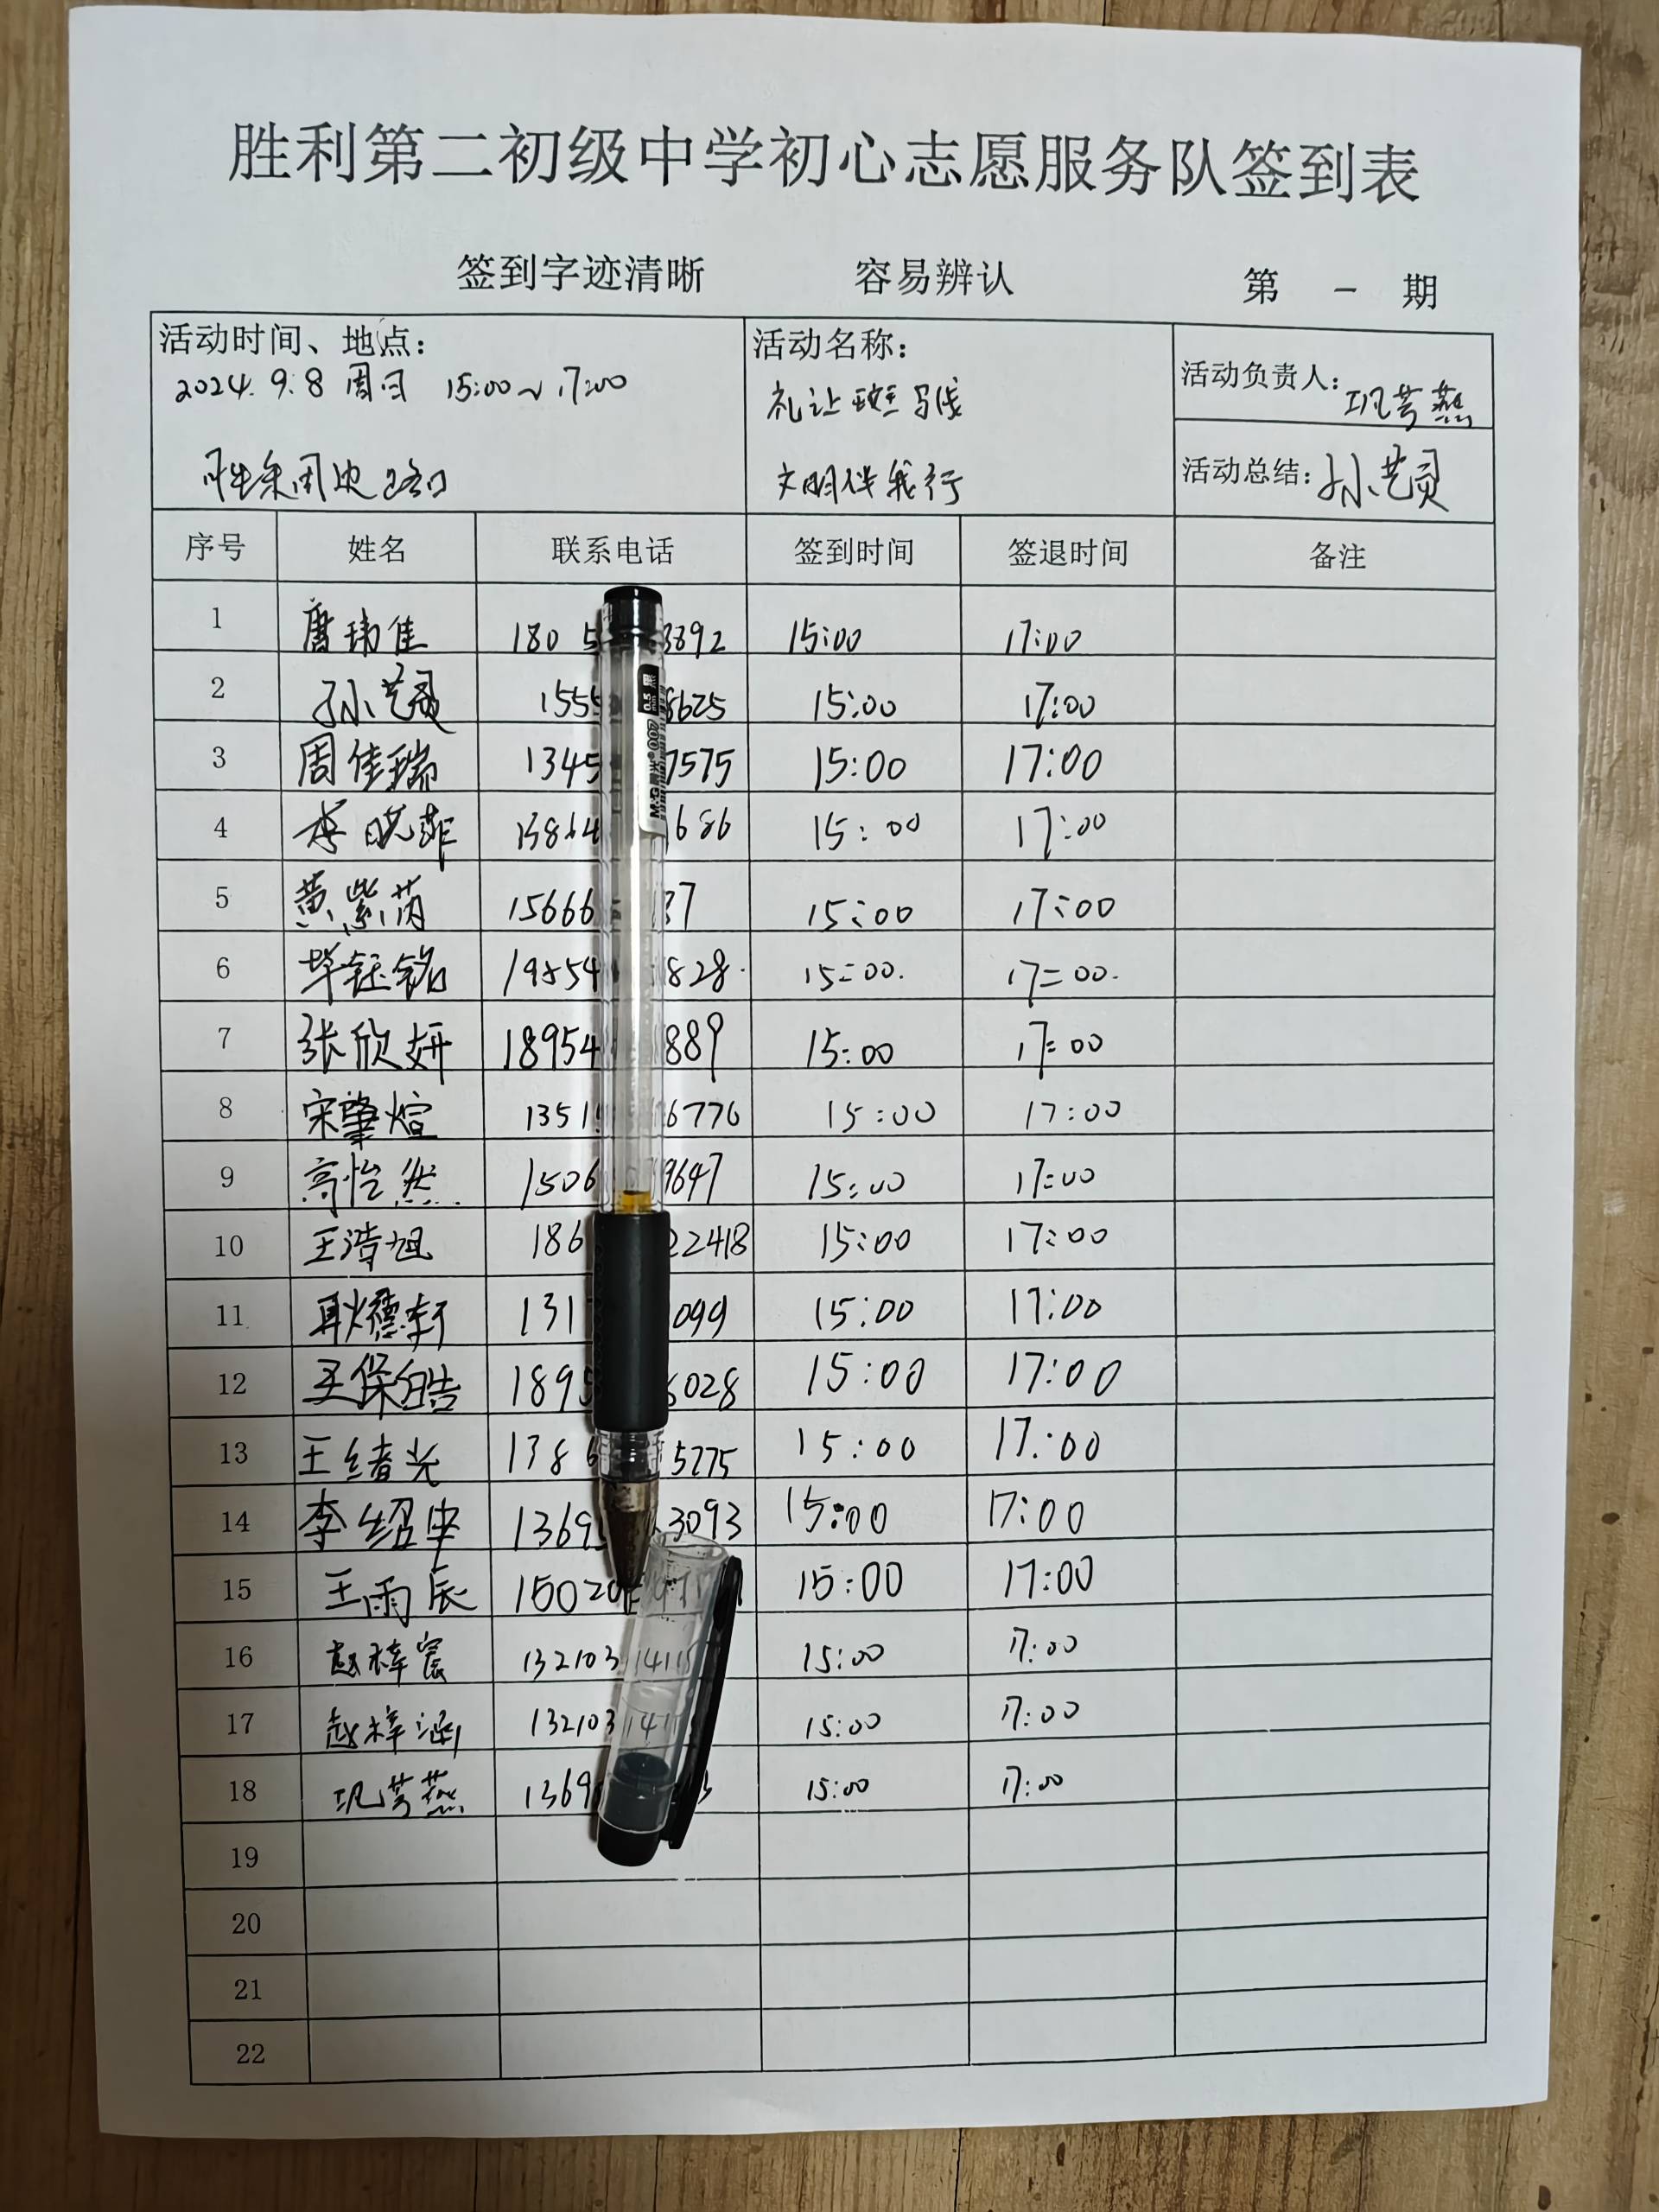 胜利第二初级中学初心志愿服务队签到表
签到字迹清晰 容易辨认 第 一 期
活动时间、地点: 活动名称: 活动负责人: 巩芳燕
2024.9.8 周日 15:00~17:00 礼让斑马线
胜采周边路口 文明伴我行 活动总结: 孙艺
序号 姓名 联系电话 签到时间 签退时间 备注
1 唐玮佳 180 5 3892 15:00 17:00
2 孙艺 1555 8625 15:00 17:00
3 周佳瑞 1345 7575 15:00 17:00
4 李晓菲 13864 1686 15:00 17:00
5 黄紫茵 15666 37 15:00 17:00
6 毕钰铭 19854 828 15:00 17:00
7 张欣妍 18954 889 15:00 17:00
8 宋肇煊 1351 6776 15:00 17:00
9 高怡然 1506 9647 15:00 17:00
10 王浩旭 186 22418 15:00 17:00
11 耿德轩 131 099 15:00 17:00
12 王保皓 1895 6028 15:00 17:00
13 王绪光 1386 5275 15:00 17:00
14 李绍申 1369 3093 15:00 17:00
15 王雨辰 15020 15:00 17:00
16 赵梓宸 132103 141 15:00 17:00
17 赵梓涵 132103 141 15:00 17:00
18 巩芳燕 1369 3 15:00 17:00
19
20
21
22
M&G 晨光 007
0.5 mm 黑